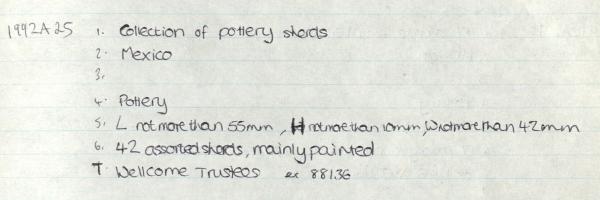 1992A25 1. Collection of pottery sherds
2. Mexico
3.
4. Pottery
5. L not more than 55mm, H not more than 10mm, W not more than 42mm
6. 42 assorted sherds, mainly painted
7. Wellcome Trustees ex 88136